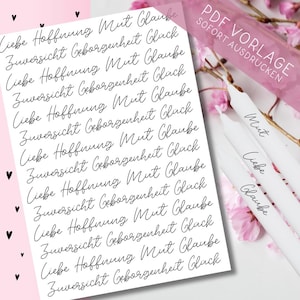 Liebe Hoffnung Mut Glaube
Zuversicht Geborgenheit Glück
Liebe Hoffnung Mut Glaube
Zuversicht Geborgenheit Glück
Liebe Hoffnung Mut Glaube
Zuversicht Geborgenheit Glück
Liebe Hoffnung Mut Glaube
Zuversicht Geborgenheit Glück
Liebe Hoffnung Mut Glaube
Zuversicht Geborgenheit Glück
Liebe Hoffnung Mut Glaube
Zuversicht Geborgenheit Glück
Liebe Hoffnung Mut Glaube
Zuversicht Geborgenheit Glück
PDF VORLAGE
SOFORT AUSDRUCKEN
Mut
Liebe
Glaube